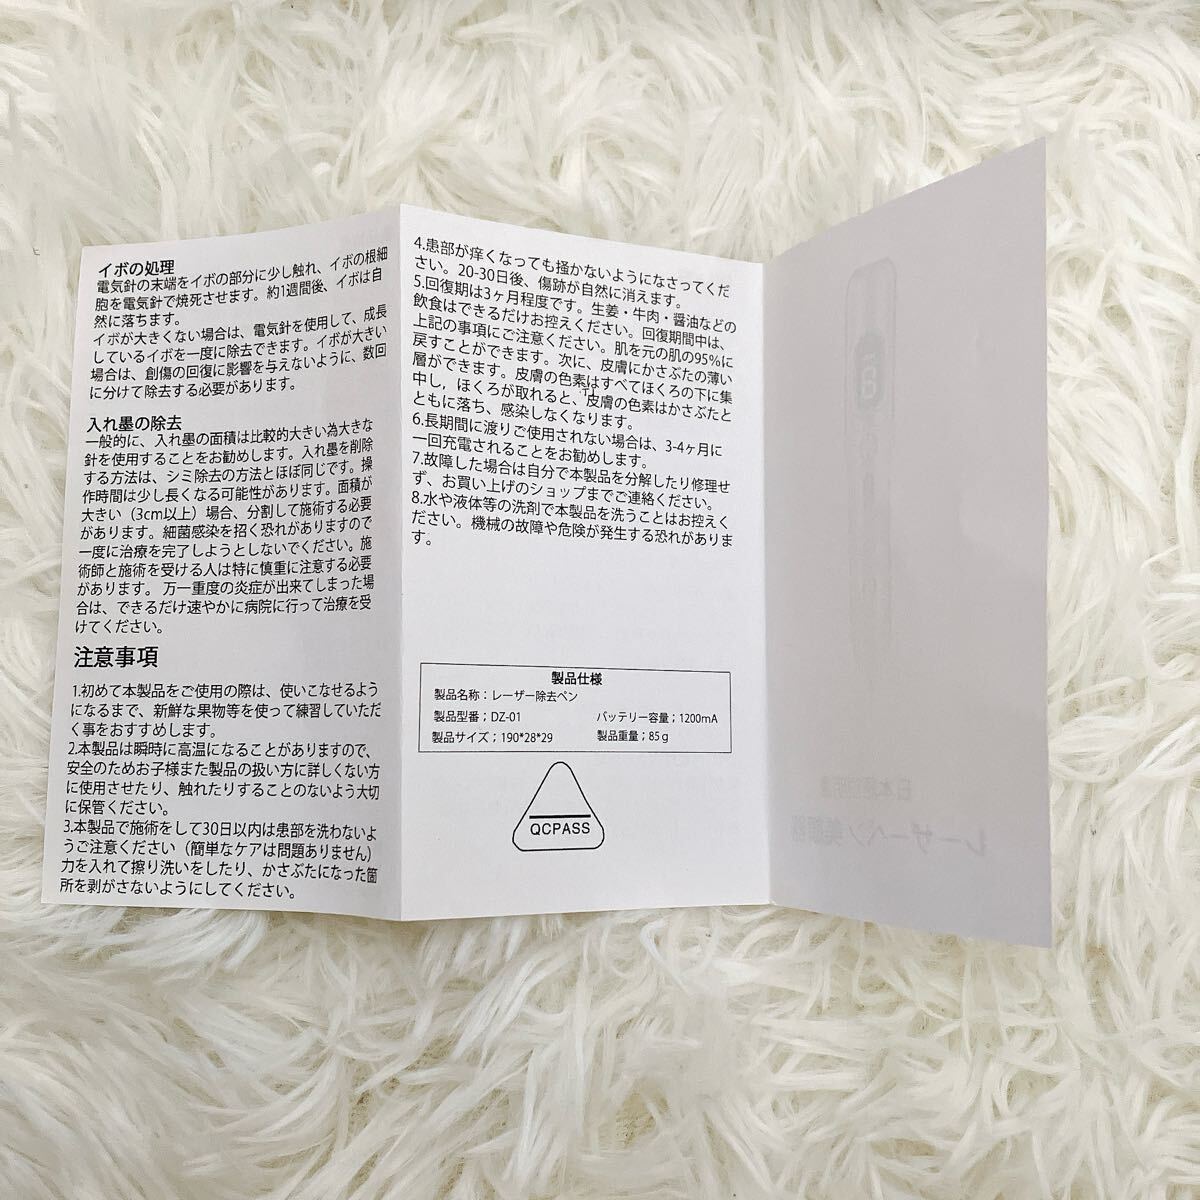 イボの処理
電気針の末端をイボの部分に少し触れ、イボの根細
胞を電気針で焼死させます。約1週間後、イボは自
然に落ちます。
イボが大きくない場合は、電気針を使用して、成長
しているイボを一度に除去できます。イボが大きい
場合は、創傷の回復に影響を与えないように、数回
に分けて除去する必要があります。
入れ墨の除去
一般的に、入れ墨の面積は比較的大きい為大きな
針を使用することをお勧めします。入れ墨を削除
する方法は、シミ除去の方法とほぼ同じです。操
作時間は少し長くなる可能性があります。面積が
大きい（3cm以上）場合、分割して施術する必要
があります。細菌感染を招く恐れがありますので
一度に治療を完了しようとしないでください。施
術師と施術を受ける人は特に慎重に注意する必要
があります。 万一重度の炎症が出来てしまった場
合は、できるだけ速やかに病院に行って治療を受
けてください。
注意事項
1.初めて本製品をご使用の際は、使いこなせるよう
になるまで、新鮮な果物等を使って練習していただ
く事をおすすめします。
2.本製品は瞬時に高温になることがありますので、
安全のためお子様また製品の扱い方に詳しくない方
に使用させたり、触れたりすることのないよう大切
に保管ください。
3.本製品で施術をして30日以内は患部を洗わないよ
うご注意ください（簡単なケアは問題ありません）
力を入れて擦り洗いをしたり、かさぶたになった箇
所を剥がさないようにしてください。
4.患部が痒くなっても掻かないようになさってくだ
さい。20-30日後、傷跡が自然に消えます。
5.回復期は3ヶ月程度です。生姜・牛肉・醤油などの
飲食はできるだけお控えください。回復期間中は、
上記の事項にご注意ください。肌を元の肌の95%に
戻すことができます。次に、皮膚にかさぶたの薄い
層ができます。皮膚の色素はすべてほくろの下に集
中し，ほくろが取れると、皮膚の色素はかさぶたと
ともに落ち、感染しなくなります。
6.長期間に渡りご使用されない場合は、3-4ヶ月に
一回充電されることをお勧めします。
7.故障した場合は自分で本製品を分解したり修理せ
ず、お買い上げのショップまでご連絡ください。
8.水や液体等の洗剤で本製品を洗うことはお控えく
ださい。機械の故障や危険が発生する恐れがありま
す。
製品仕様
製品名称：レーザー除去ペン
製品型番；DZ-01 バッテリー容量；1200mA
製品サイズ；190*28*29 製品重量；85ｇ
QCPASS
レーザーペン